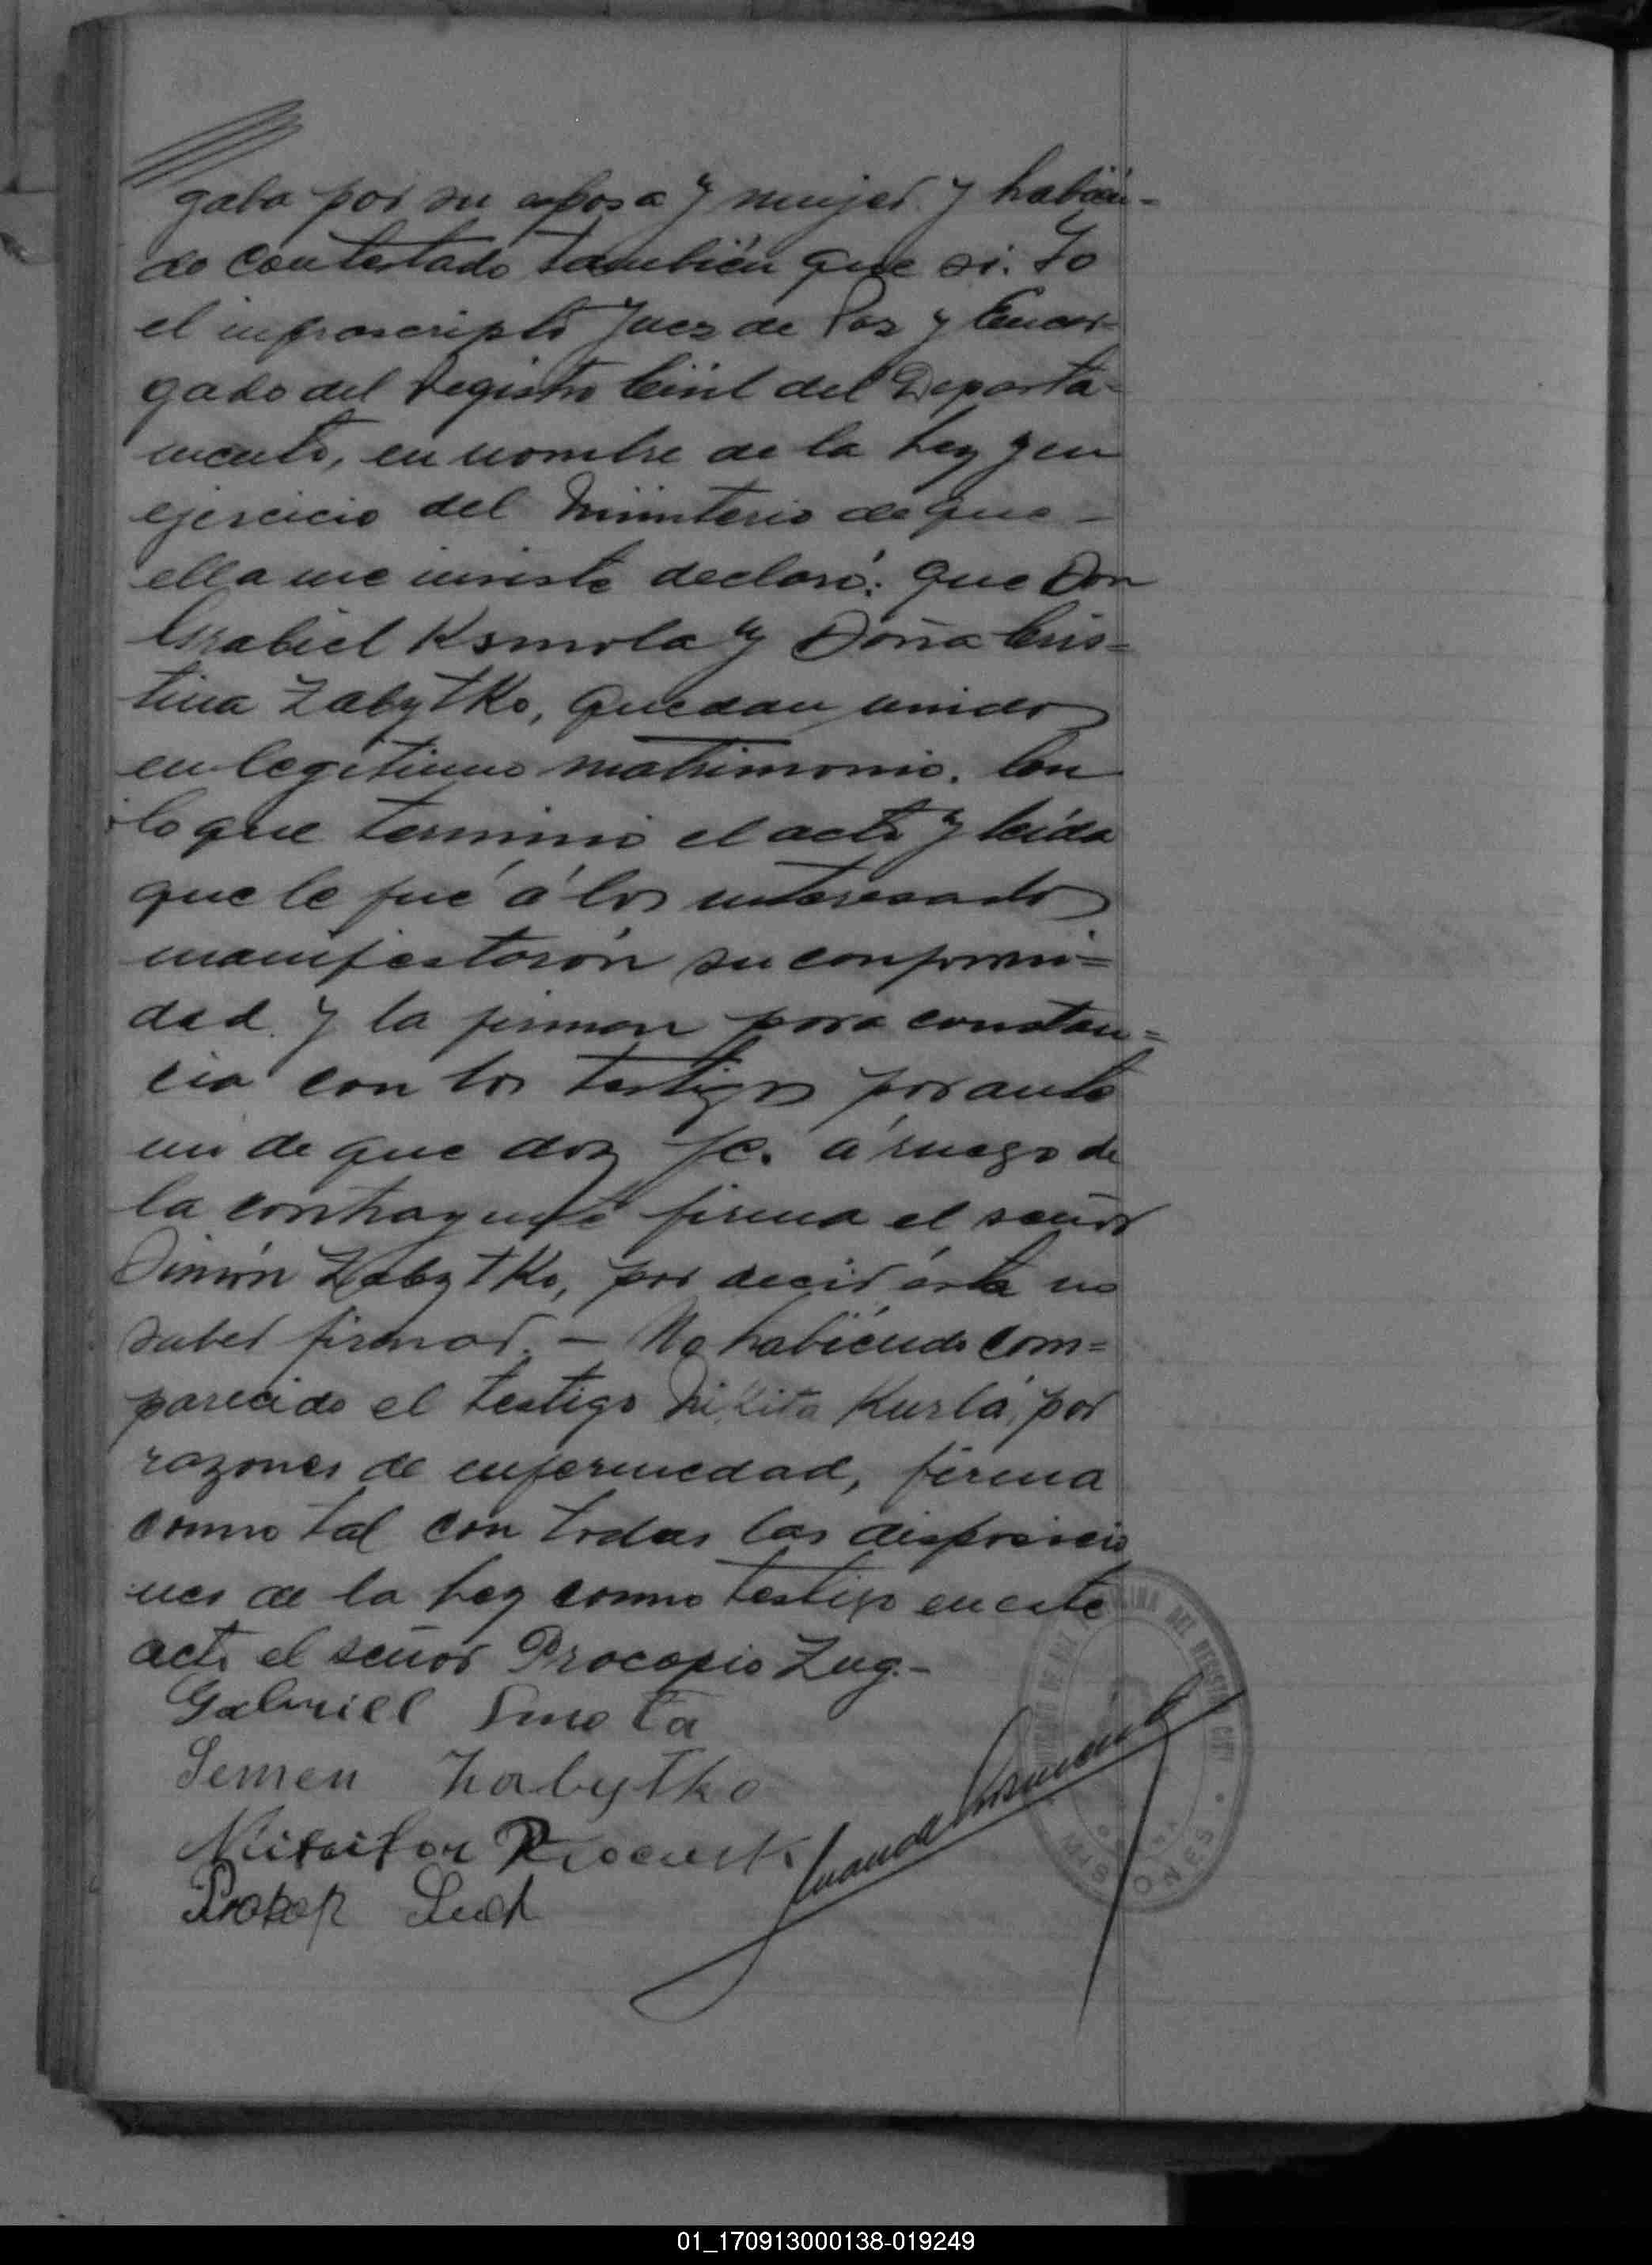 gaba por su esposa y mujer y habien-
do contestado también que si. Yo
el infrascripto Juez de Paz y Encar-
gado del Registro Civil del Departa-
mento, en nombre de la Ley y en
ejercicio del Ministerio de que -
ella me inviste declaré: que Don
Grabiel Ksmola y Doña Cris=
tina Zabytko, quedan unidos
en legitimo matrimonio. Con
lo que terminó el acto y leida
que le fué á los interesados
manifestarón su conformi=
dad y la firman para constan=
cia con los testigos por ante
mi de que doy fé. á ruego de
la contrayente firma el señor
Simón Zabytko, por decir ésta no
saber firmar. - No habiendo com=
parecido el testigo Nikita Kurla, por
razones de enfermedad, firma
como tal con todas las disposicio
nes de la Ley como testigo en este
acto el señor Procopio Zug.-
Gabriel Smota
Semen Zabytko
Prokop
MISIONES
01_170913000138-019249